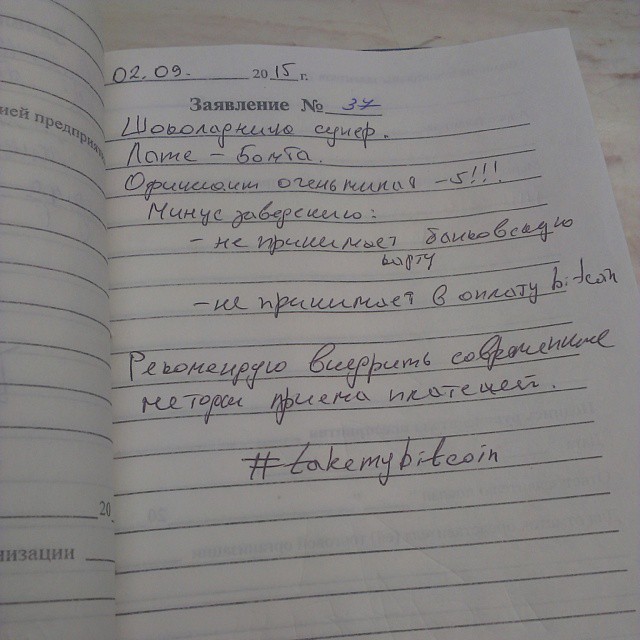 02.09. 2015 г.
Заявление № 37
Шоколадница супер.
Лате – бомба.
Официант очень милая –5!!!
Минус заведению:
– не принимает банковскую
карту
– не принимает в оплату bitcoin
Рекомендую внедрить современные
методы приема платежей.
#takemybitcoin
ией предприя
20
низации